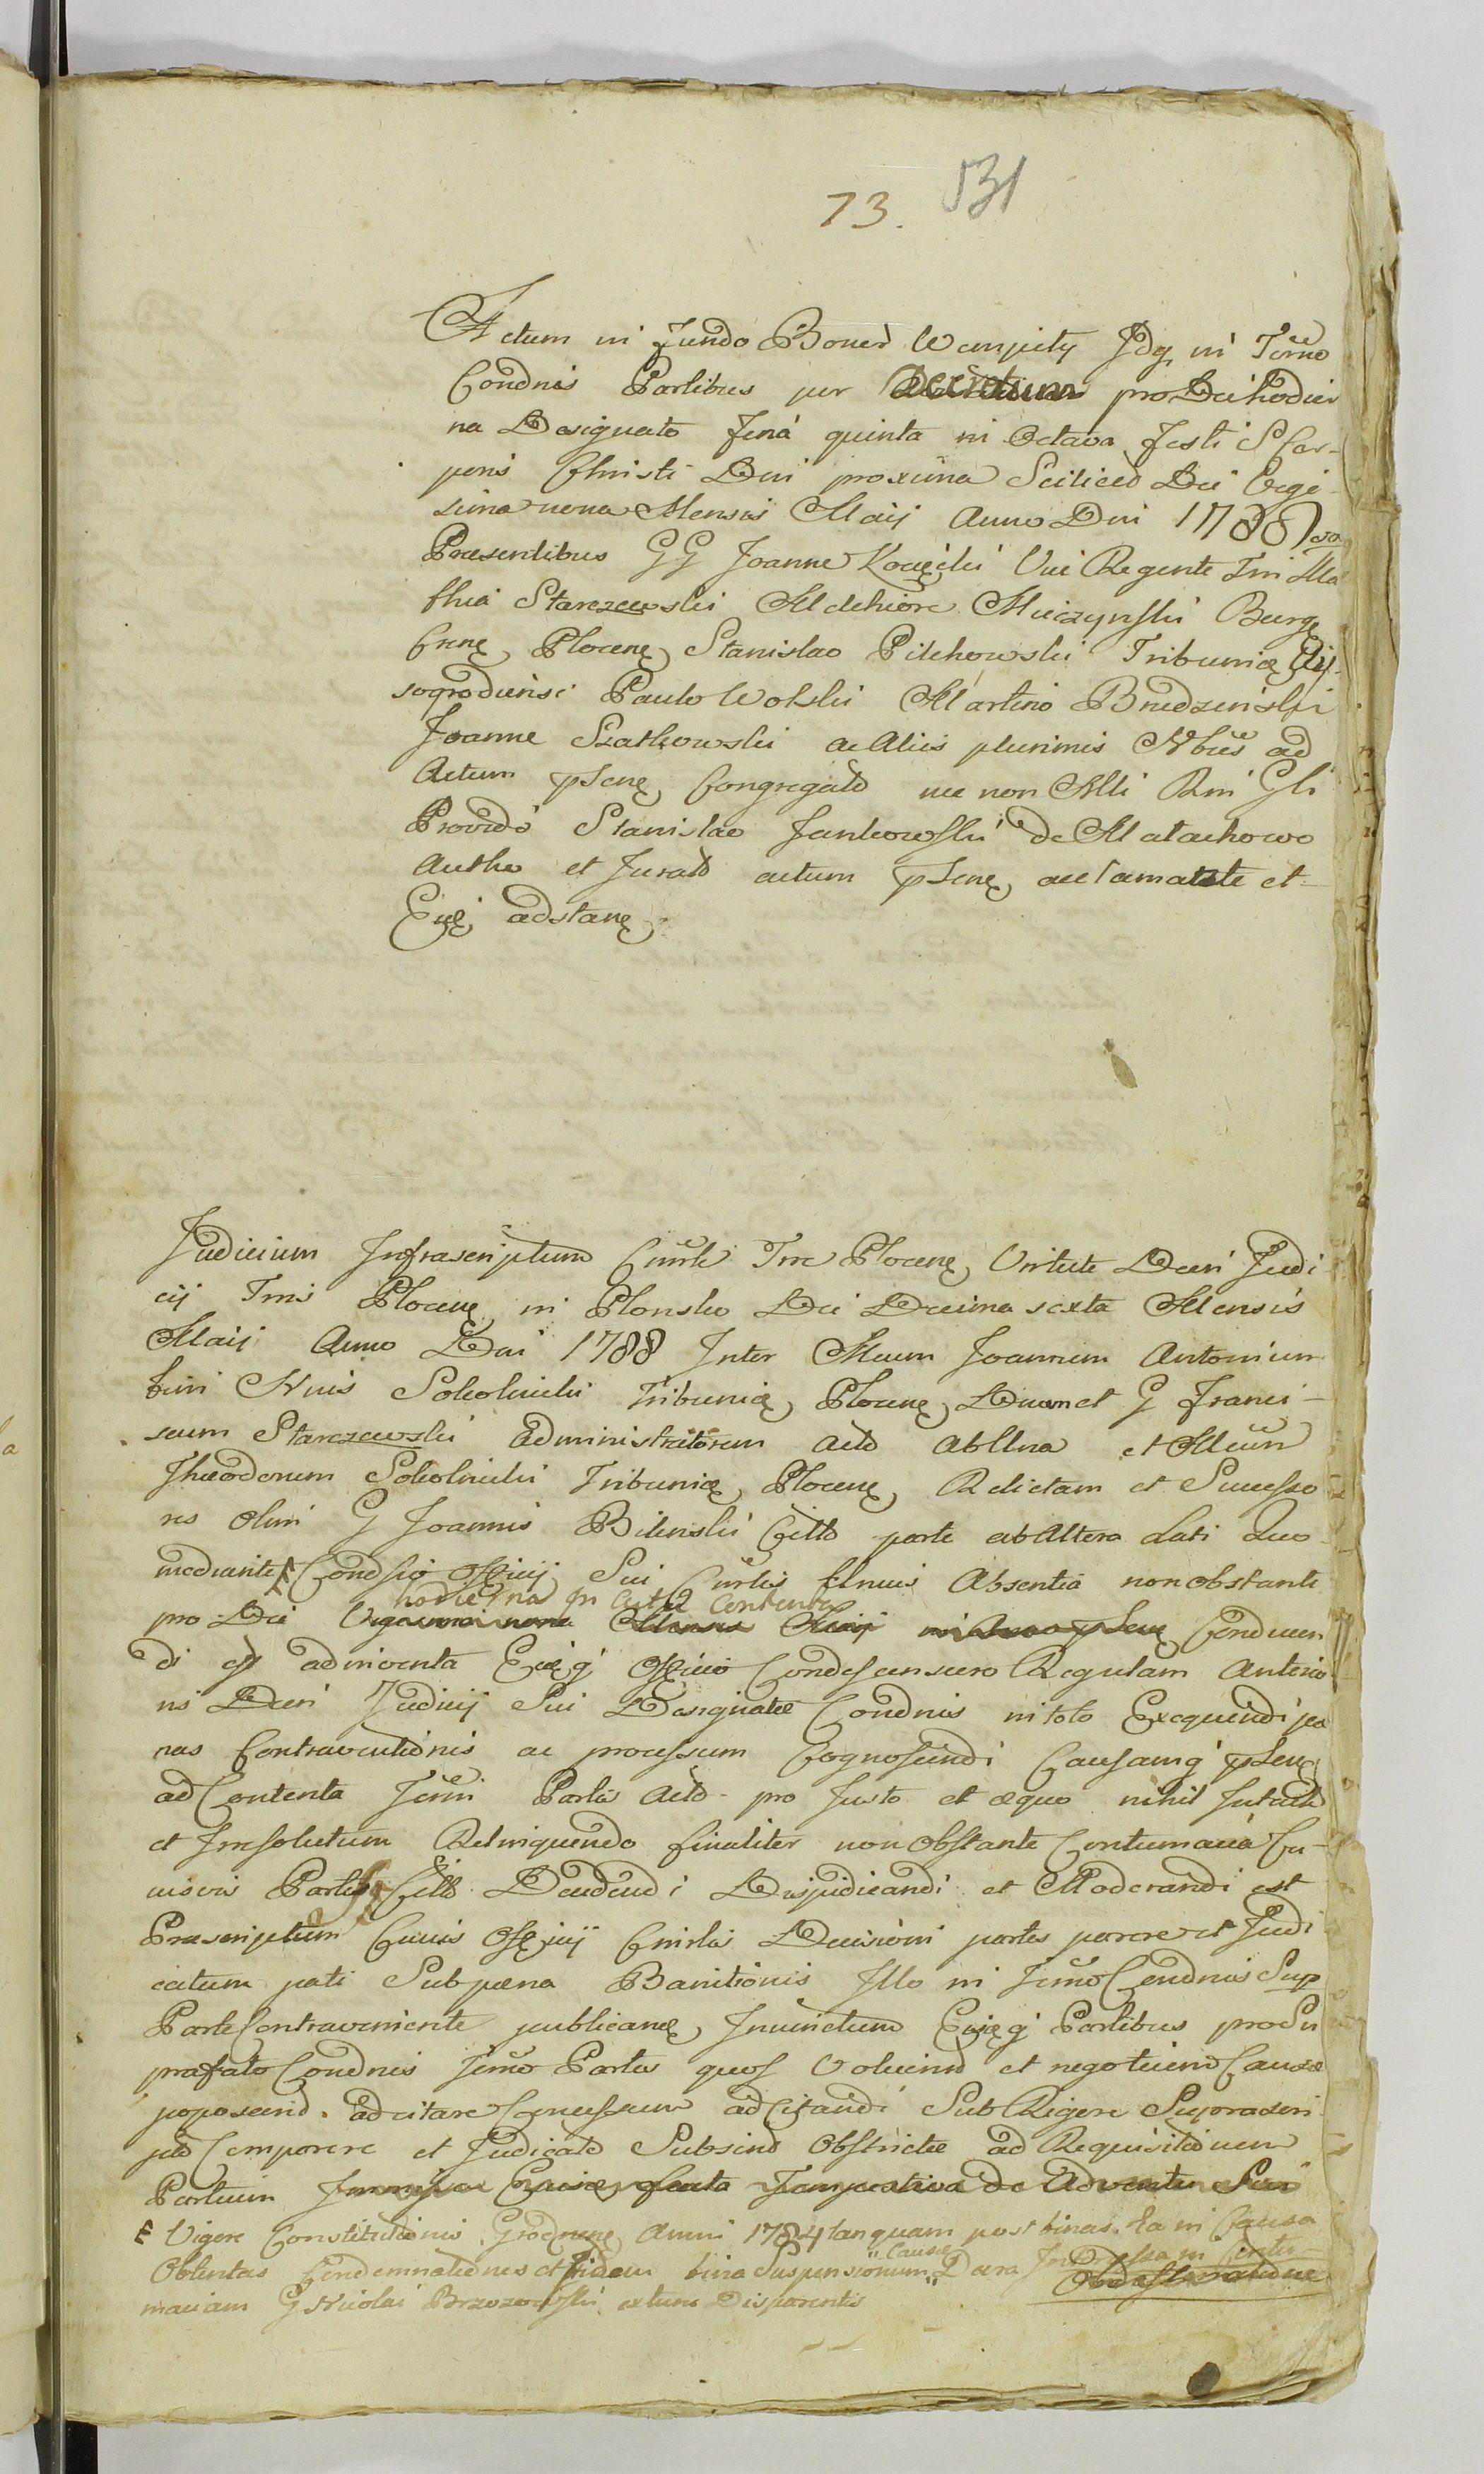 73. 531
Actum in fundo Bonor Wempiły Jdq in Termo
Condnis Partibus per Decretum pro Die hodier
na Designato feria quinta in Octava festi S Cor-
poris Christi Dni proxima Scilicet Die Vige-
sima nona Mensis Maij Anno Dni 1788vo
Praesentibus GG Joanne Kocięcki Vice Regente Tri Ma
thia Starczewski Melchiore Miączynski Burg
Crens Plocens Stanislao Pilchowski Tribunid Wy-
sogrodiensi Paulo Wolski Martino Brudzinski
Joanne Szatkowski ac Aliis plurimis Nbus ad
Actum psens Congregatis nec non Mti Rni Gli
Provido Stanislao Jankowski de Małachowo
Autho et Jurato actum psens acclamante et
Eius adstans
Judicium Infrascriptum Cmrle Trre Plocens Virtute Decri Judi
cij Trris Plocens in Plonsko Die Decima sexta Mensis
Maij Anno Dni 1788 Inter Mcum Joannem Antonium
bini Nnis Sokolnicki Tribunid Plocens Duum et G Franci-
scum Starczewski Administratorem Acto ab Una et Mcum
Theodorum Sokolnicki Tribunid Plocens Relictam et Successo
res olim G Joannis Bilinski Citto parte ab Altera Lati Quo
mediante Condsio Officij Sui Cmrlis Unius Absentia non obstante
hodierna in Actu Contenta
pro Die Vigesima nona Mensis Maij in Anno psens Conducen
di et adinventa Eusq Officio Condescensuro Regulam Anterio
ris Decri Judicij Sui Designatae Condnis in toto Exequendi poe
nas Contraventionis ac processum Cognoscendi Causamq psens
ad Contenta Termi Partis Acto pro Justo et aequo nihil Intactum
et Irresolutum Relinquendo finaliter non obstante Contumacia Cu-
iusvis Partis Citto Decidendi Disjudicandi et Moderandi est
Praescriptum Cuius Officij Cmrlis Decisioni partes parere et Judi
catum pati Sub poena Banitionis Illo in Termo Condnis Sup
Parte Contraveniente publicans Inuinctum Eusq Partibus pro Su
praefato Condnis Termo Partes quos Voluerint et negotium Causae
poposcerit adcitare Concessum adCitandi Sub Rigore Suprascri
pto Comparere et Judicato Subsint Obstrictae ad Requisitionem
Partium Immissa Tempestiva de Adventu Sui
Vigore Constitutionis Grodnens Anni 1784 tanquam post binas ta in Causa
Obtentas Condemnationes et fidem bina Suspensionum Causae Decra
maciam G Nicolai Brzozowski actum Disparentis